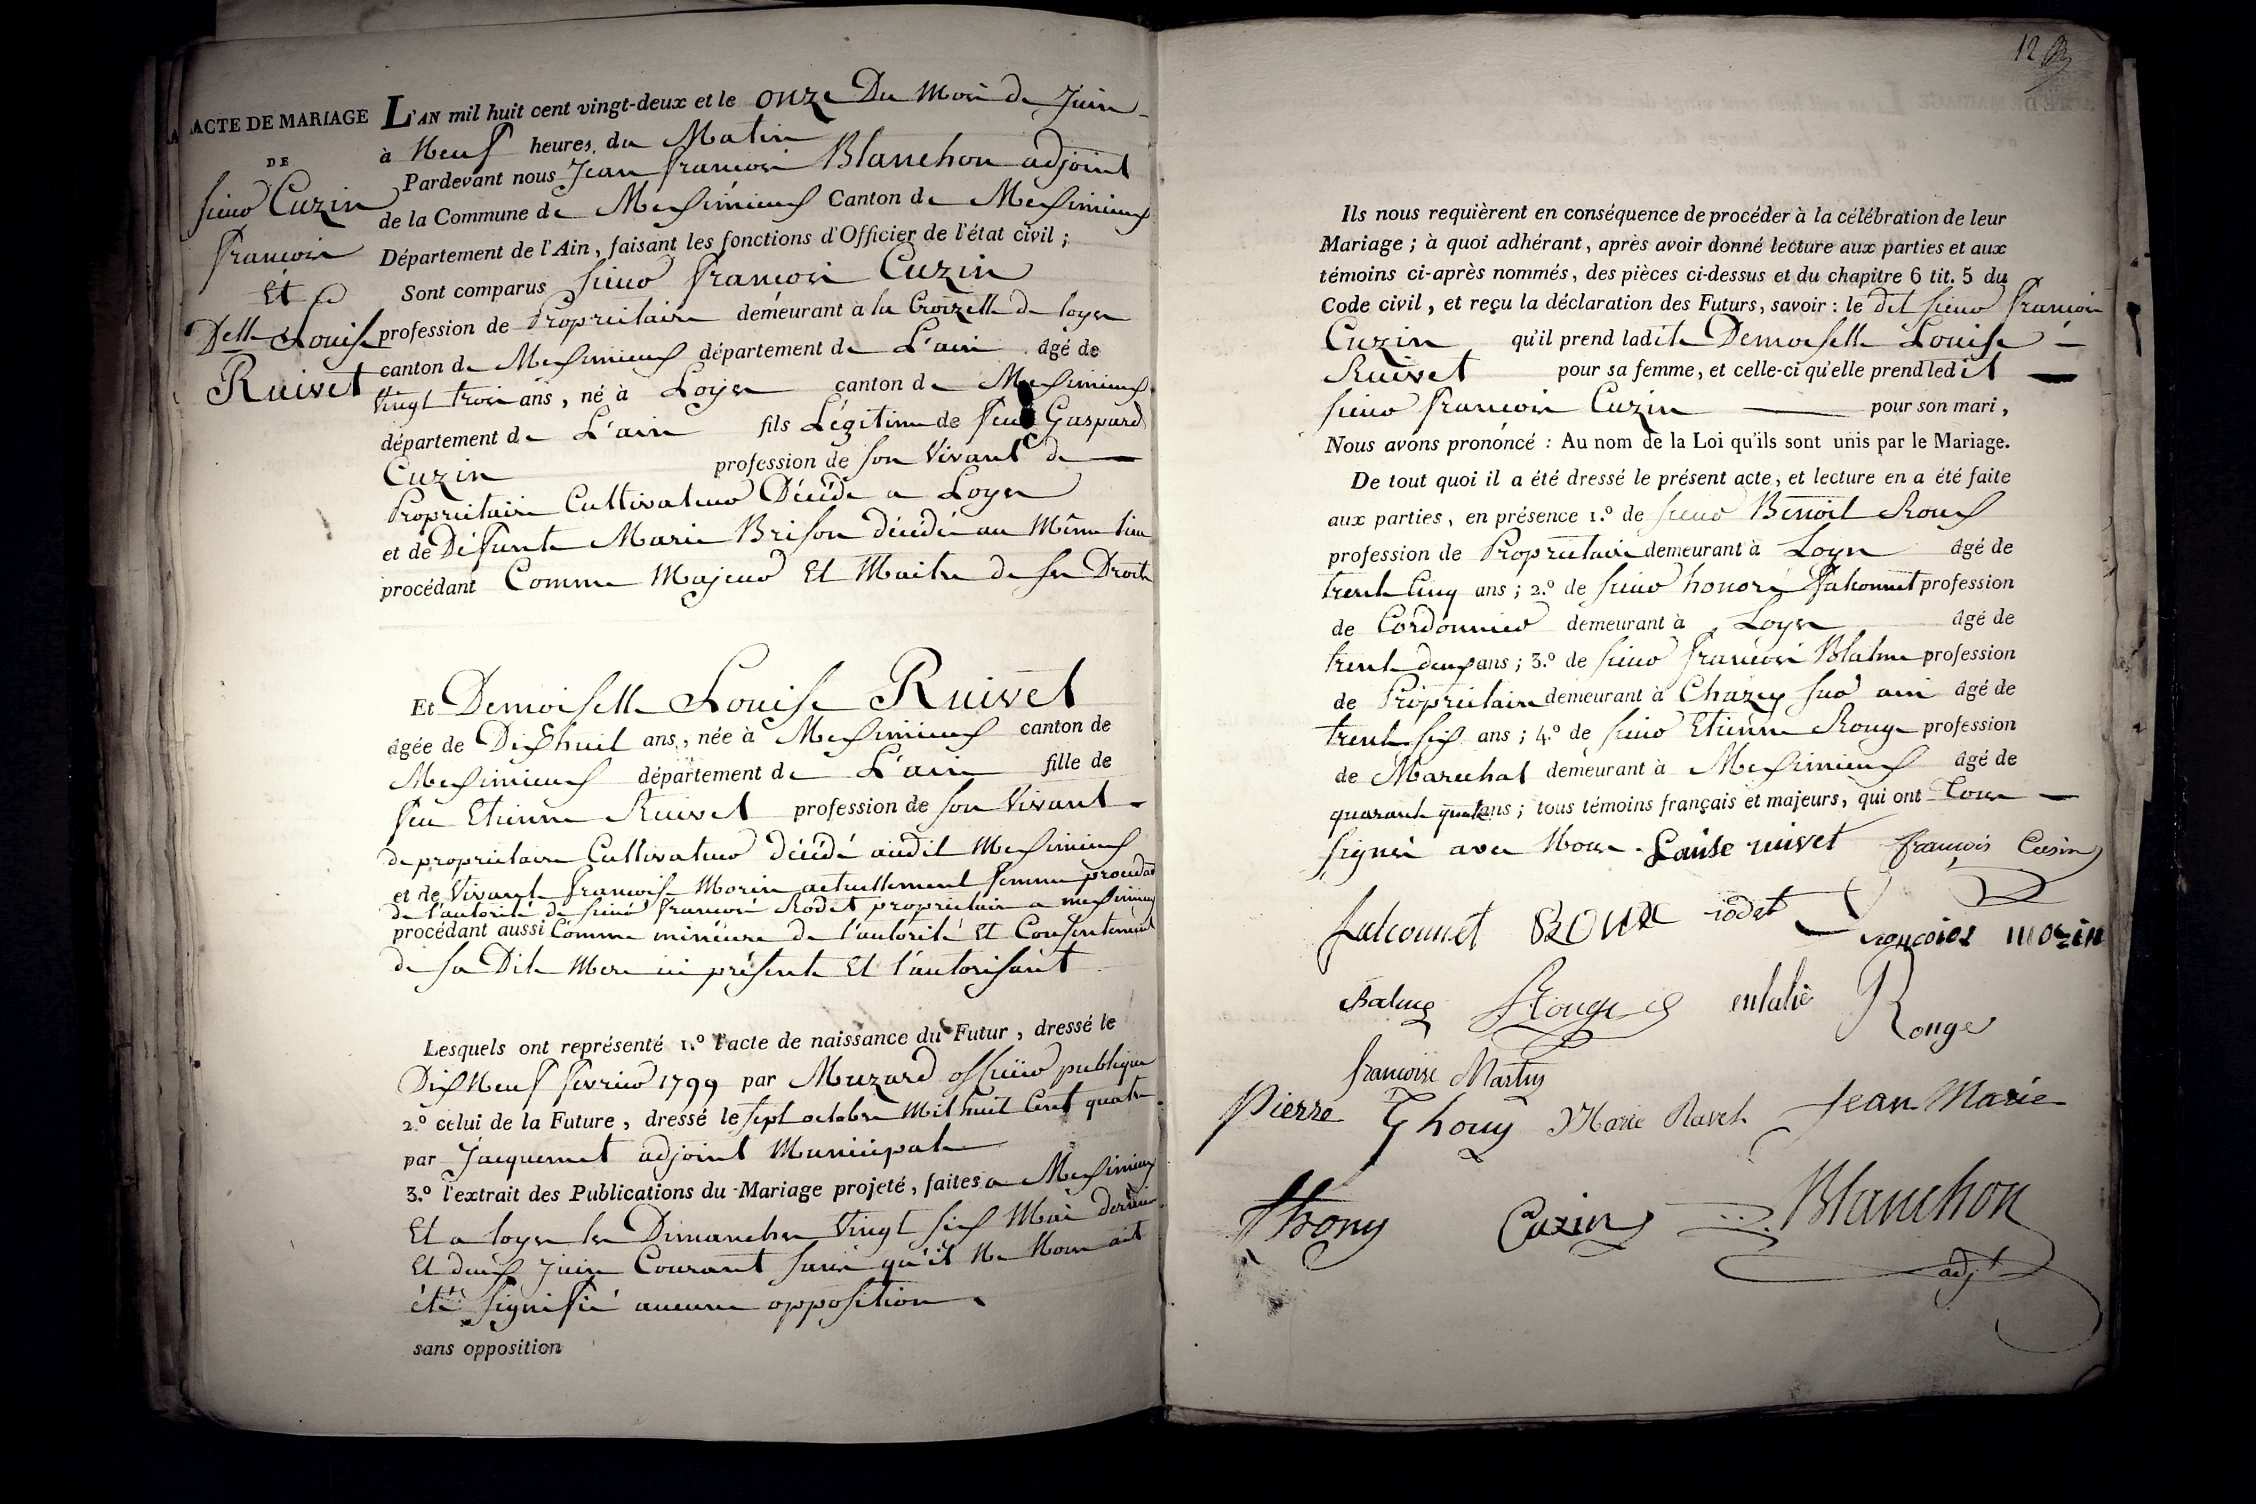 ACTE DE MARIAGE
DE
sieur Cuzin
françois
Et
Delle Louise
Ruivet
L'AN mil huit cent vingt-deux et le onze Du Mois de Juin
à Neuf heures du Matin
Pardevant nous Jean françois Blanchon adjoint
de la Commune de Meximieux Canton de Meximieux
Département de l'Ain, faisant les fonctions d'Officier de l'état civil ;
Sont comparus sieur françois Cuzin
profession de Propriétaire demeurant à la Croizelle de loyes
canton de Meximieux département de L'ain âgé de
vingt trois ans, né à Loyes canton de Meximieux
département de L'ain fils Légitime de feu Gaspard
Cuzin profession de son Vivant de
Propriétaire Cultivateur Décédé a Loyes
et de Défunte Marie Brison décédée au Même lieu
procédant Comme Majeur Et Maitre de ses Droits
Et Demoiselle Louise Ruivet
âgée de Dix huit ans, née à Meximieux canton de
Meximieux département de L'ain fille de
feu Etienne Ruivet profession de son Vivant
de propriétaire Cultivateur décédé audit Meximieux
et de Vivante françoise Morin actuellement femme procédant
de l'autorité de sieur françois Rodet propriétaire a meximieux
procédant aussi Comme mineure de l'autorité Et Consentement
de sa Dite Mere ici présente Et l'autorisant
Lesquels ont représenté 1.º l'acte de naissance du Futur, dressé le
Dix Neuf fevrier 1799 par Muzard officier publique
2.º celui de la Future, dressé le sept octobre Mil huit Cent quatre
par Jacquemet adjoint Municipale
3.º l'extrait des Publications du Mariage projeté, faites a Meximieux
Et a loyes les Dimanches Vingt six Mai dernier
Et deux Juin Courant sans qu'il Ne Nous ait
été signifié aucune opposition
sans opposition
12
Ils nous requièrent en conséquence de procéder à la célébration de leur
Mariage ; à quoi adhérant, après avoir donné lecture aux parties et aux
témoins ci-après nommés, des pièces ci-dessus et du chapitre 6 tit. 5 du
Code civil, et reçu la déclaration des Futurs, savoir : le dit sieur françois
Cuzin qu'il prend ladite Demoiselle Louise
Ruivet pour sa femme, et celle-ci qu'elle prend ledit
sieur françois Cuzin pour son mari,
Nous avons prononcé : Au nom de la Loi qu'ils sont unis par le Mariage.
De tout quoi il a été dressé le présent acte, et lecture en a été faite
aux parties, en présence 1.º de sieur Benoit Roux
profession de Propriétaire demeurant à Loyes âgé de
trente Cinq ans ; 2.º de sieur honoré falconnet profession
de Cordonnier demeurant à Loyes âgé de
trente deux ans ; 3.º de sieur françois Balme profession
de Propriétaire demeurant à Chazey sur ain âgé de
trente six ans ; 4.º de sieur Etienne Rouge profession
de Marechal demeurant à Meximieux âgé de
quarante quatre ans ; tous témoins français et majeurs, qui ont Tous
signés avec Nous Louise ruivet françois Cusin
falconnet ROUX rodet françoise morin
Balme Rouge eulalie Rouge
françoise Martin
Pierre Thony Marie Ravet Jean Marie
Thony Cuzin Blanchon
adjt